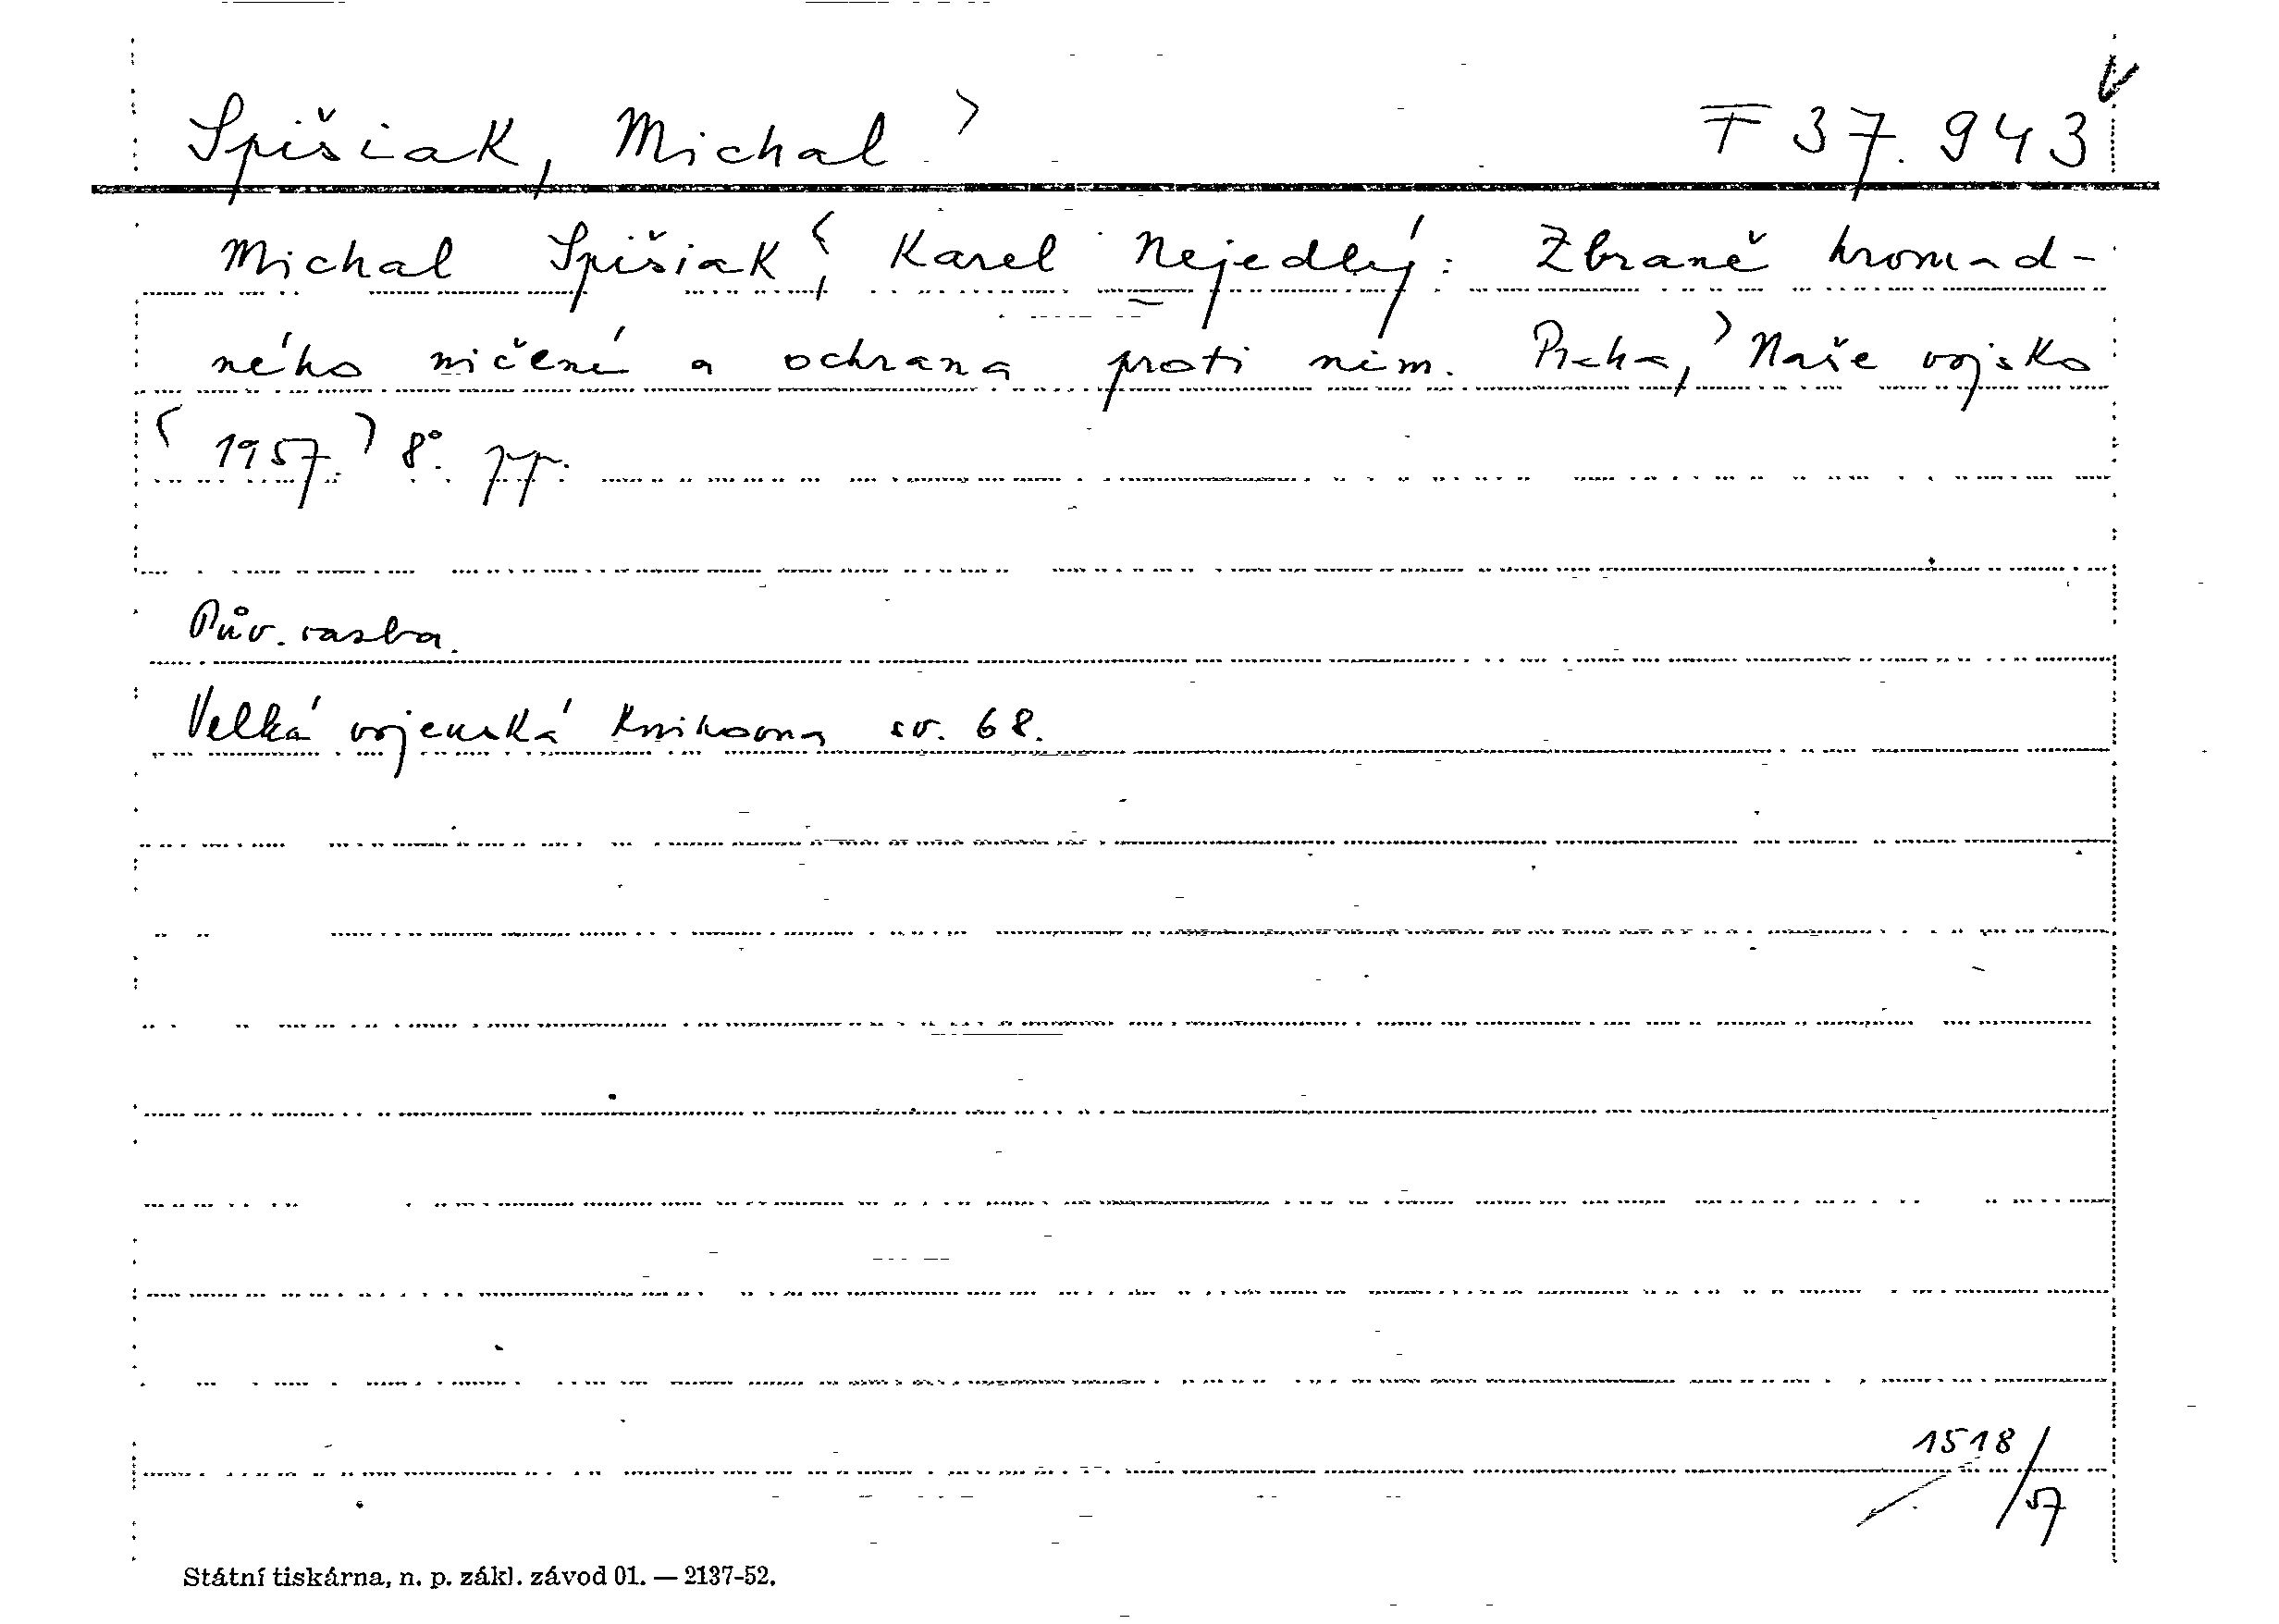 Spišiak, Michal F 37.943
Michal Spišiak, Karel Nejedlý: Zbraně hromad-
ného ničení a ochrana proti nim. Praha, Naše vojsko
1957. 8°. pp.
Pův. vazba.
Velká vojenská knihovna sv. 68.
1518/57
Státní tiskárna, n. p. zákl. závod 01. — 2137-52.